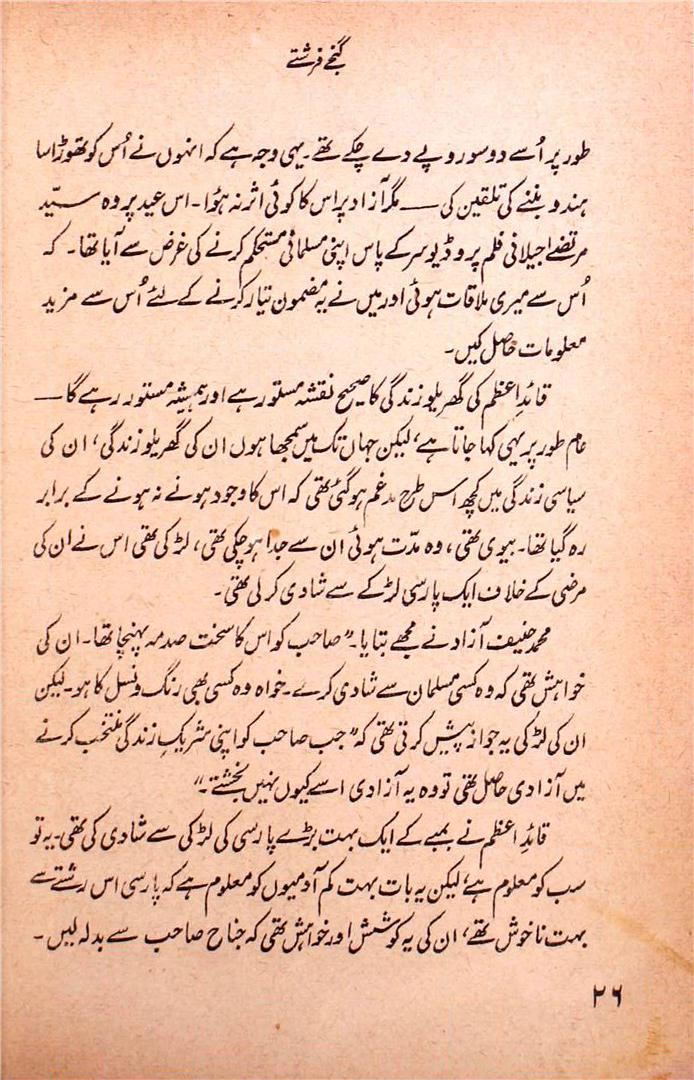 گنجے فرشتے
طور پر اُسے دو سو روپے دے چکے تھے۔ یہی وجہ ہے کہ انہوں نے اُس کو تھوڑا سا
ہندو بننے کی تلقین کی — مگر آزاد پر اس کا کوئی اثر نہ ہؤا۔ اس عید پر وہ سیّد
مرتضےٰ جیلانی فلم پروڈیوسر کے پاس اپنی مسلمانی مستحکم کرنے کی غرض سے آیا تھا۔ کہ
اُس سے میری ملاقات ہوئی اور میں نے یہ مضمون تیار کرنے کے لئے اُس سے مزید
معلومات حاصل کیں۔
قائدِ اعظم کی گھریلو زندگی کا صحیح نقشہ مستور ہے اور ہمیشہ مستور رہے گا —
عام طور پر یہی کہا جاتا ہے، لیکن جہاں تک میں سمجھا ہوں ان کی گھریلو زندگی، ان کی
سیاسی زندگی میں کچھ اس طرح مدغم ہو گئی تھی کہ اس کا وجود ہونے نہ ہونے کے برابر
رہ گیا تھا۔ بیوی تھی، وہ مدّت ہوئی ان سے جدا ہو چکی تھی، لڑکی تھی اس نے ان کی
مرضی کے خلاف ایک پارسی لڑکے سے شادی کر لی تھی۔
محمد حنیف آزاد نے مجھے بتایا۔ ”صاحب کو اس کا سخت صدمہ پہنچا تھا۔ ان کی
خواہش تھی کہ وہ کسی مسلمان سے شادی کرے۔ خواہ وہ کسی بھی رنگ و نسل کا ہو۔ لیکن
ان کی لڑکی یہ جواز پیش کرتی تھی کہ ”جب صاحب کو اپنی شریکِ زندگی منتخب کرنے
میں آزادی حاصل تھی تو وہ یہ آزادی اسے کیوں نہیں بخشتے۔“
قائدِ اعظم نے بمبے کے ایک بہت بڑے پارسی کی لڑکی سے شادی کی تھی۔ یہ تو
سب کو معلوم ہے، لیکن یہ بات بہت کم آدمیوں کو معلوم ہے کہ پارسی اس رشتے سے
بہت ناخوش تھے، ان کی یہ کوشش اور خواہش تھی کہ جناح صاحب سے بدلہ لیں۔
۲۶